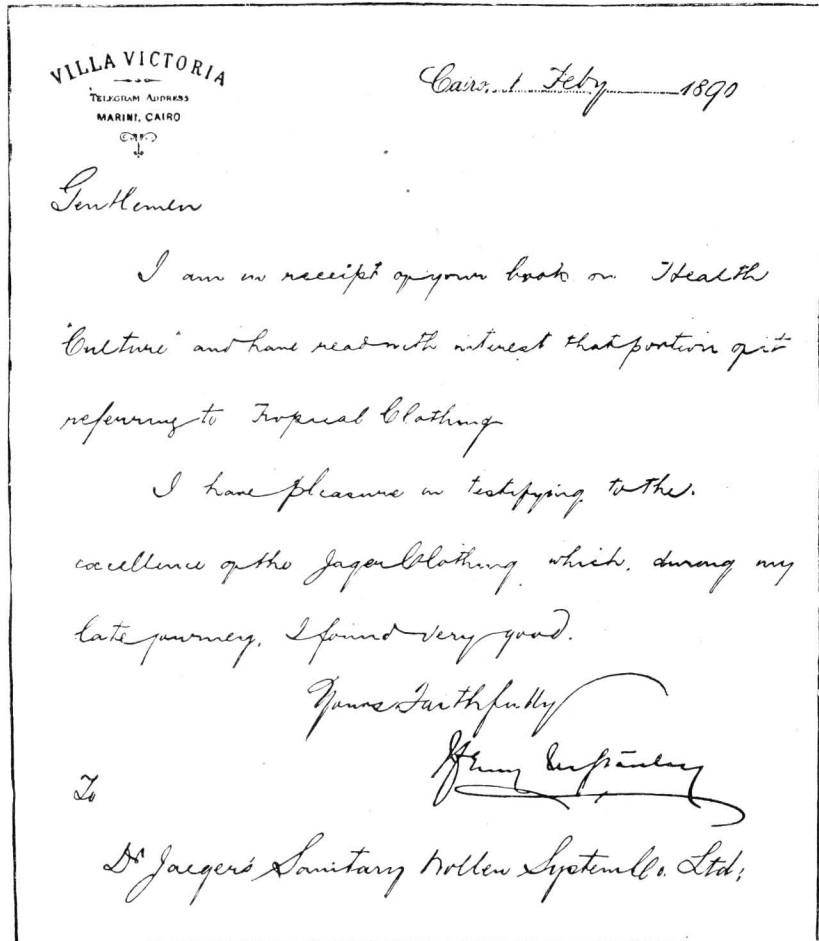 VILLA VICTORIA
TELEGRAM ADDRESS
MARINI, CAIRO
Cairo, 1 Feby 1890
Gentlemen
I am in receipt of your book on Health
"Culture" and have read with interest that portion of it
referring to Tropical Clothing
I have pleasure in testifying to the
excellence of the Jager Clothing which, during my
late journey, I found very good.
Yours Faithfully
Henry M Stanley
To
Dr Jaeger's Sanitary Wollen System Co. Ltd;